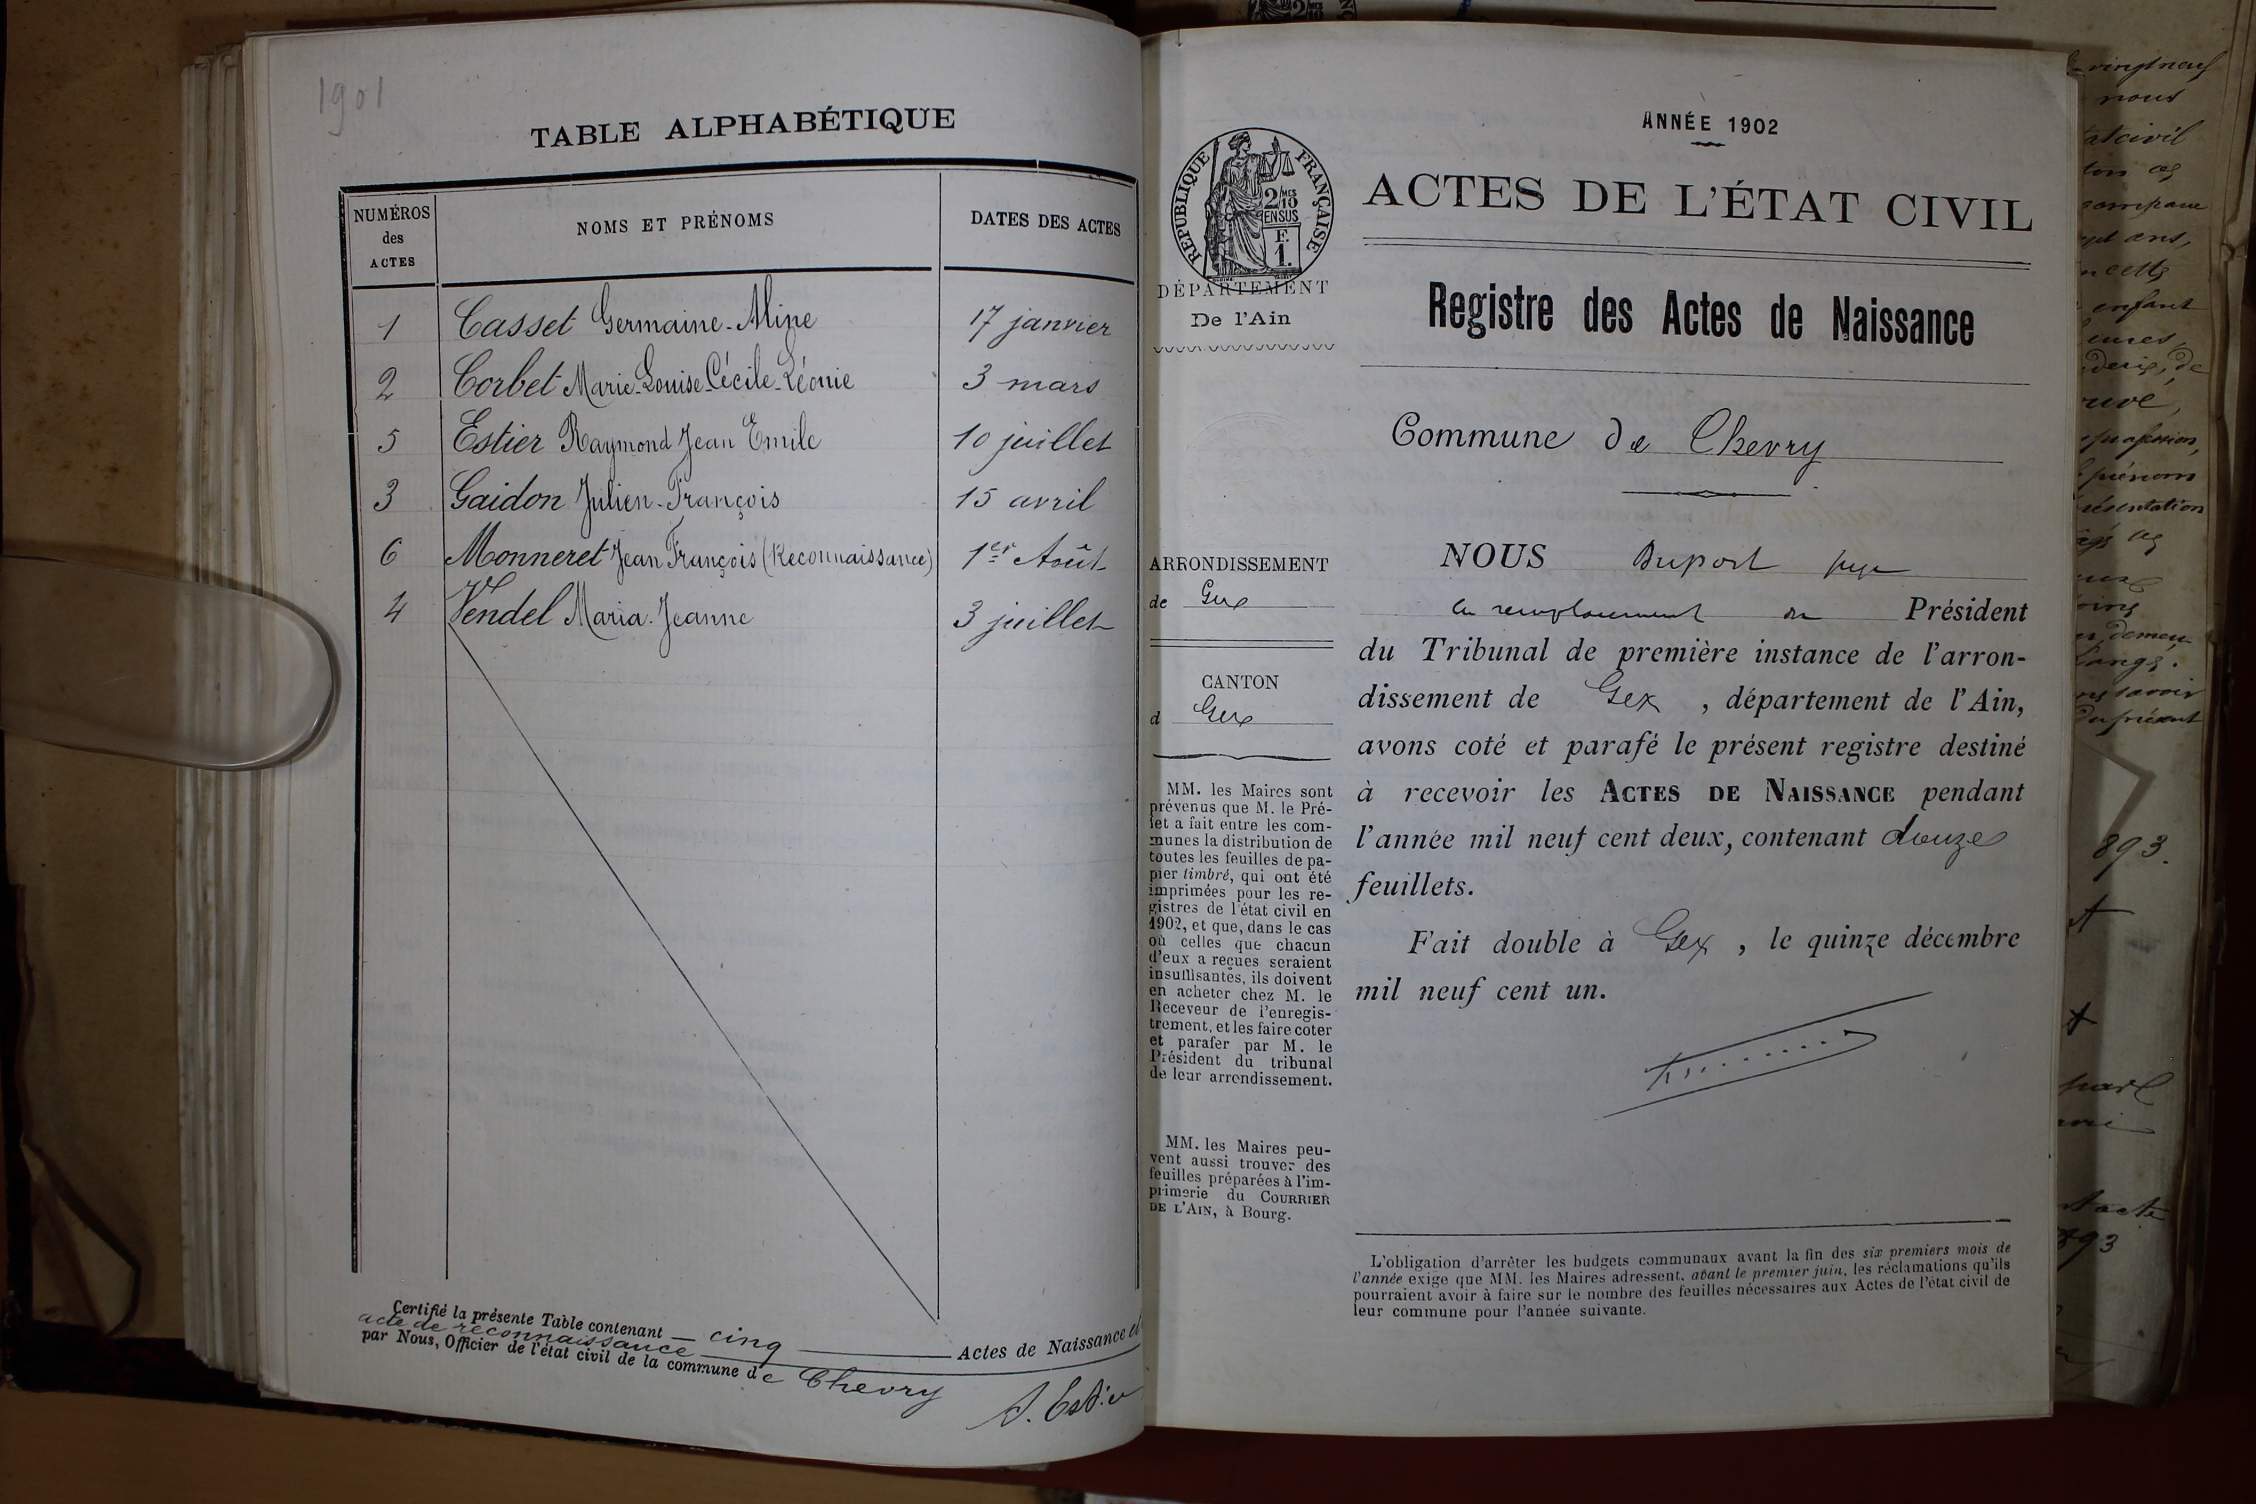 1901
TABLE ALPHABÉTIQUE
NUMÉROS des ACTES
NOMS ET PRÉNOMS
DATES DES ACTES
1 Casset Germaine-Aline 17 janvier
2 Corbet Marie-Louise-Cécile-Léonie 3 mars
5 Estier Raymond Jean Emile 10 juillet
3 Gaidon Julien-François 15 avril
6 Monneret Jean François (Reconnaissance) 1er Août
4 Vendel Maria-Jeanne 3 juillet
Certifié la présente Table contenant cinq Actes de Naissance et
acte de reconnaissance
par Nous, Officier de l'état civil de la commune de Chevry
ANNÉE 1902
RÉPUBLIQUE FRANÇAISE
2/10 MES
EN SUS
F.
1.
ACTES DE L'ÉTAT CIVIL
DÉPARTEMENT
De l'Ain
Registre des Actes de Naissance
Commune de Chevry
ARRONDISSEMENT
de Gex
CANTON
d Gex
MM. les Maires sont
prévenus que M. le Pré-
fet a fait entre les com-
munes la distribution de
toutes les feuilles de pa-
pier timbré, qui ont été
imprimées pour les re-
gistres de l'état civil en
1902, et que, dans le cas
où celles que chacun
d'eux a reçues seraient
insuffisantes, ils doivent
en acheter chez M. le
Receveur de l'enregis-
trement, et les faire coter
et parafer par M. le
Président du tribunal
de leur arrondissement.
MM. les Maires peu-
vent aussi trouver des
feuilles préparées à l'im-
primerie du COURRIER
DE L'AIN, à Bourg.
NOUS Duport juge
en remplacement du Président
du Tribunal de première instance de l'arron-
dissement de Gex, département de l'Ain,
avons coté et parafé le présent registre destiné
à recevoir les ACTES DE NAISSANCE pendant
l'année mil neuf cent deux, contenant douze
feuillets.
Fait double à Gex, le quinze décembre
mil neuf cent un.
L'obligation d'arrêter les budgets communaux avant la fin des six premiers mois de
l'année exige que MM. les Maires adressent, avant le premier juin, les réclamations qu'ils
pourraient avoir à faire sur le nombre des feuilles nécessaires aux Actes de l'état civil de
leur commune pour l'année suivante.
vingt neuf
nous
enfant
prénom
893.